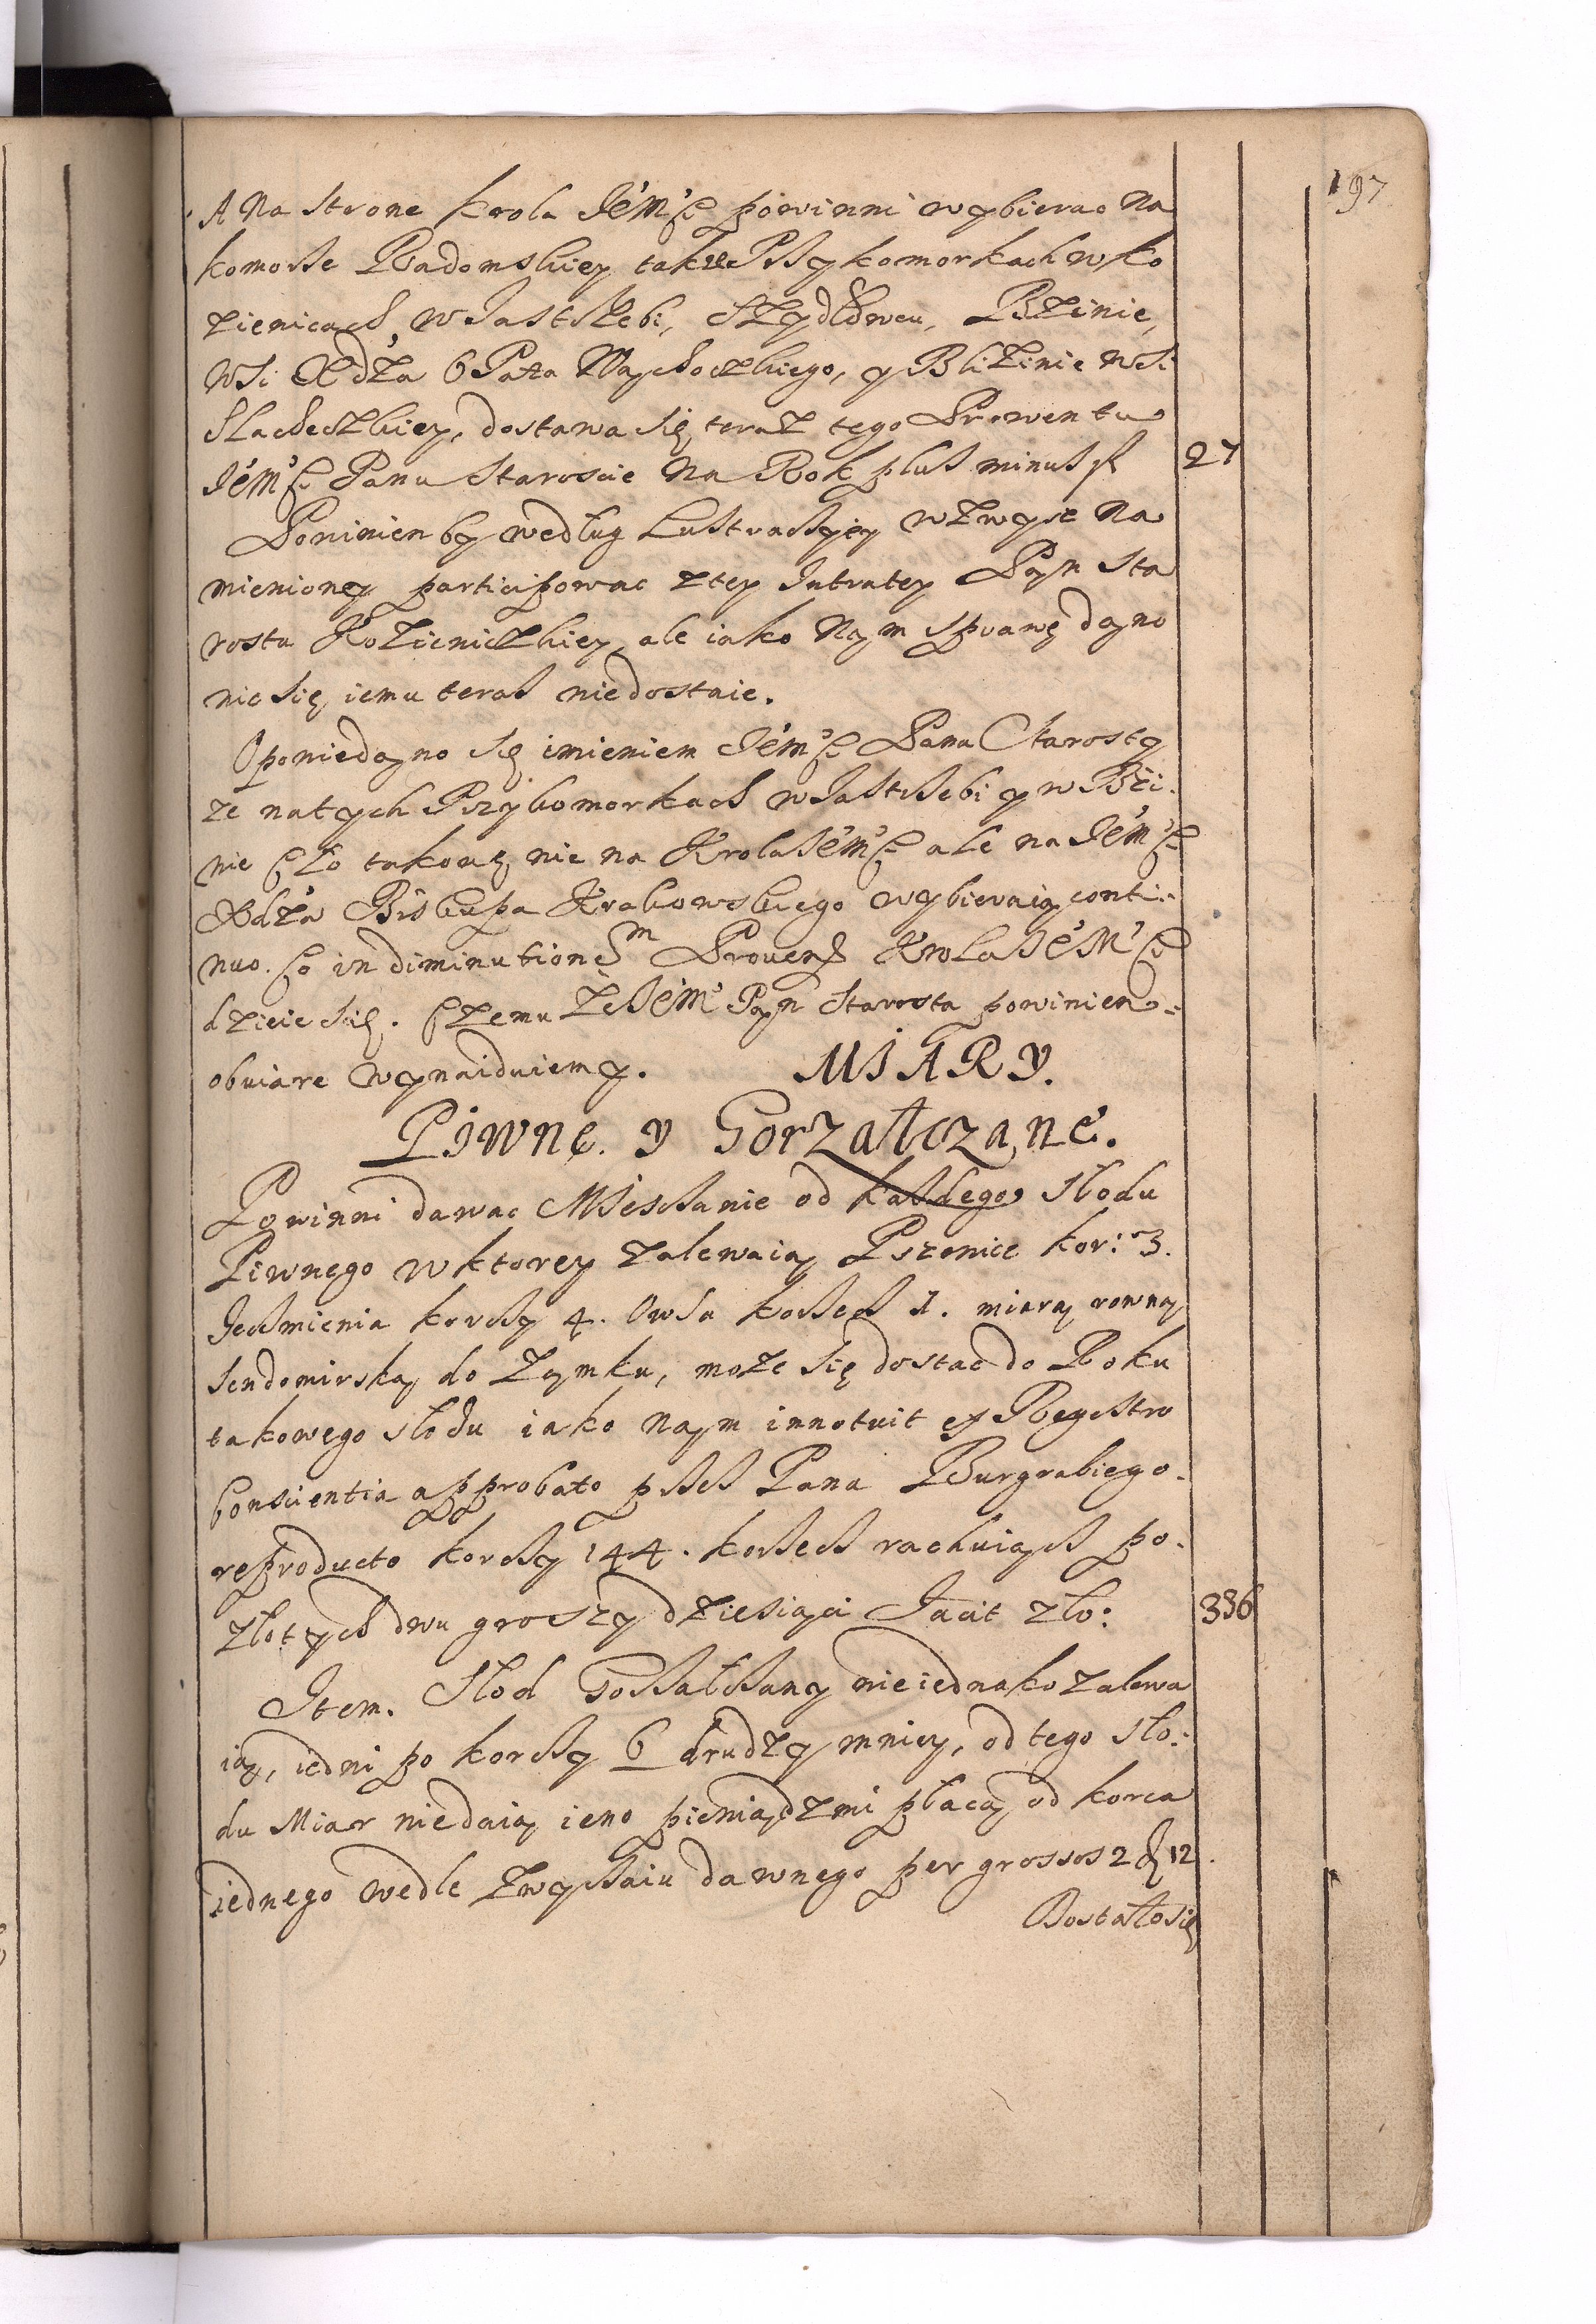 197
A Na Strone Krola JéM̃Ci powinni wybierac Na
komorſse Radomskiey takze Pſsykomorkach w ko
zienicach, w Jastſzebi, Szydłowcu, Bzinie,
wsi Xdza Opata Wąchoczkiego, y Blizinie wsi
Slacheczkiey, dostawa się teraz tego Prowentu
JéM̃Ci Panu Staroscie Na Rok plus minus fl 27
Powinien by według Lustracyiey wzwysz Na
mienioney participowac z tey Intratey Pąn Sta
rosta Kozieniczkiey, ale iako Nąm sprawę dąno
nic się iemu teras niedostaie.
Opowiedąno się imieniem JéM̃Ci Pana Starosty
ze natych Przykomorkach w Jastſsebi y w Bzi:
nie Czło takowe nie na Krola JéM̃Ci ale na JéM̃Ci
Xdza Biskupa Krakowskiego wybieraią conti:
nuo. Co in diminutionem Prouent Krola JéM̃Ci
dzieie się. Czemu ze JéM̃ Pąn Starosta powinien
obuiare wynaiduiemy. MIARY.
Piwne. y Gorzałczane.
Powinni dawac Miesſsanie od kaſsdego Słodu
Piwnego w ktorey zalewaią Pszenice kor: 3.
Jecſsmienia korcſsy 4. Owsa korſsecſs 1. miarą rowną
Sendomirską do Zamku, moze się dostac do Roku
takowego słodu iako nąm innotuit ex Regestro
Conscientia approbato pſses Pana Burgrabiego.
reproducto korcſsy 144. korſsecſs rachuiącſs po.
złotych dwu groszy dziesiąci Facit zło: 336
Item. Słod Gorſsałcſsany nieiednako zalewa
ią, iedni po korcſsy 6 drudzy mniey, od tego sło:
du Miar niedaią ieno pieniądzmi płacą od korca
iednego wedle zwycſsaiu dawnego per grossos 2 ₰ 12.
Dostało się